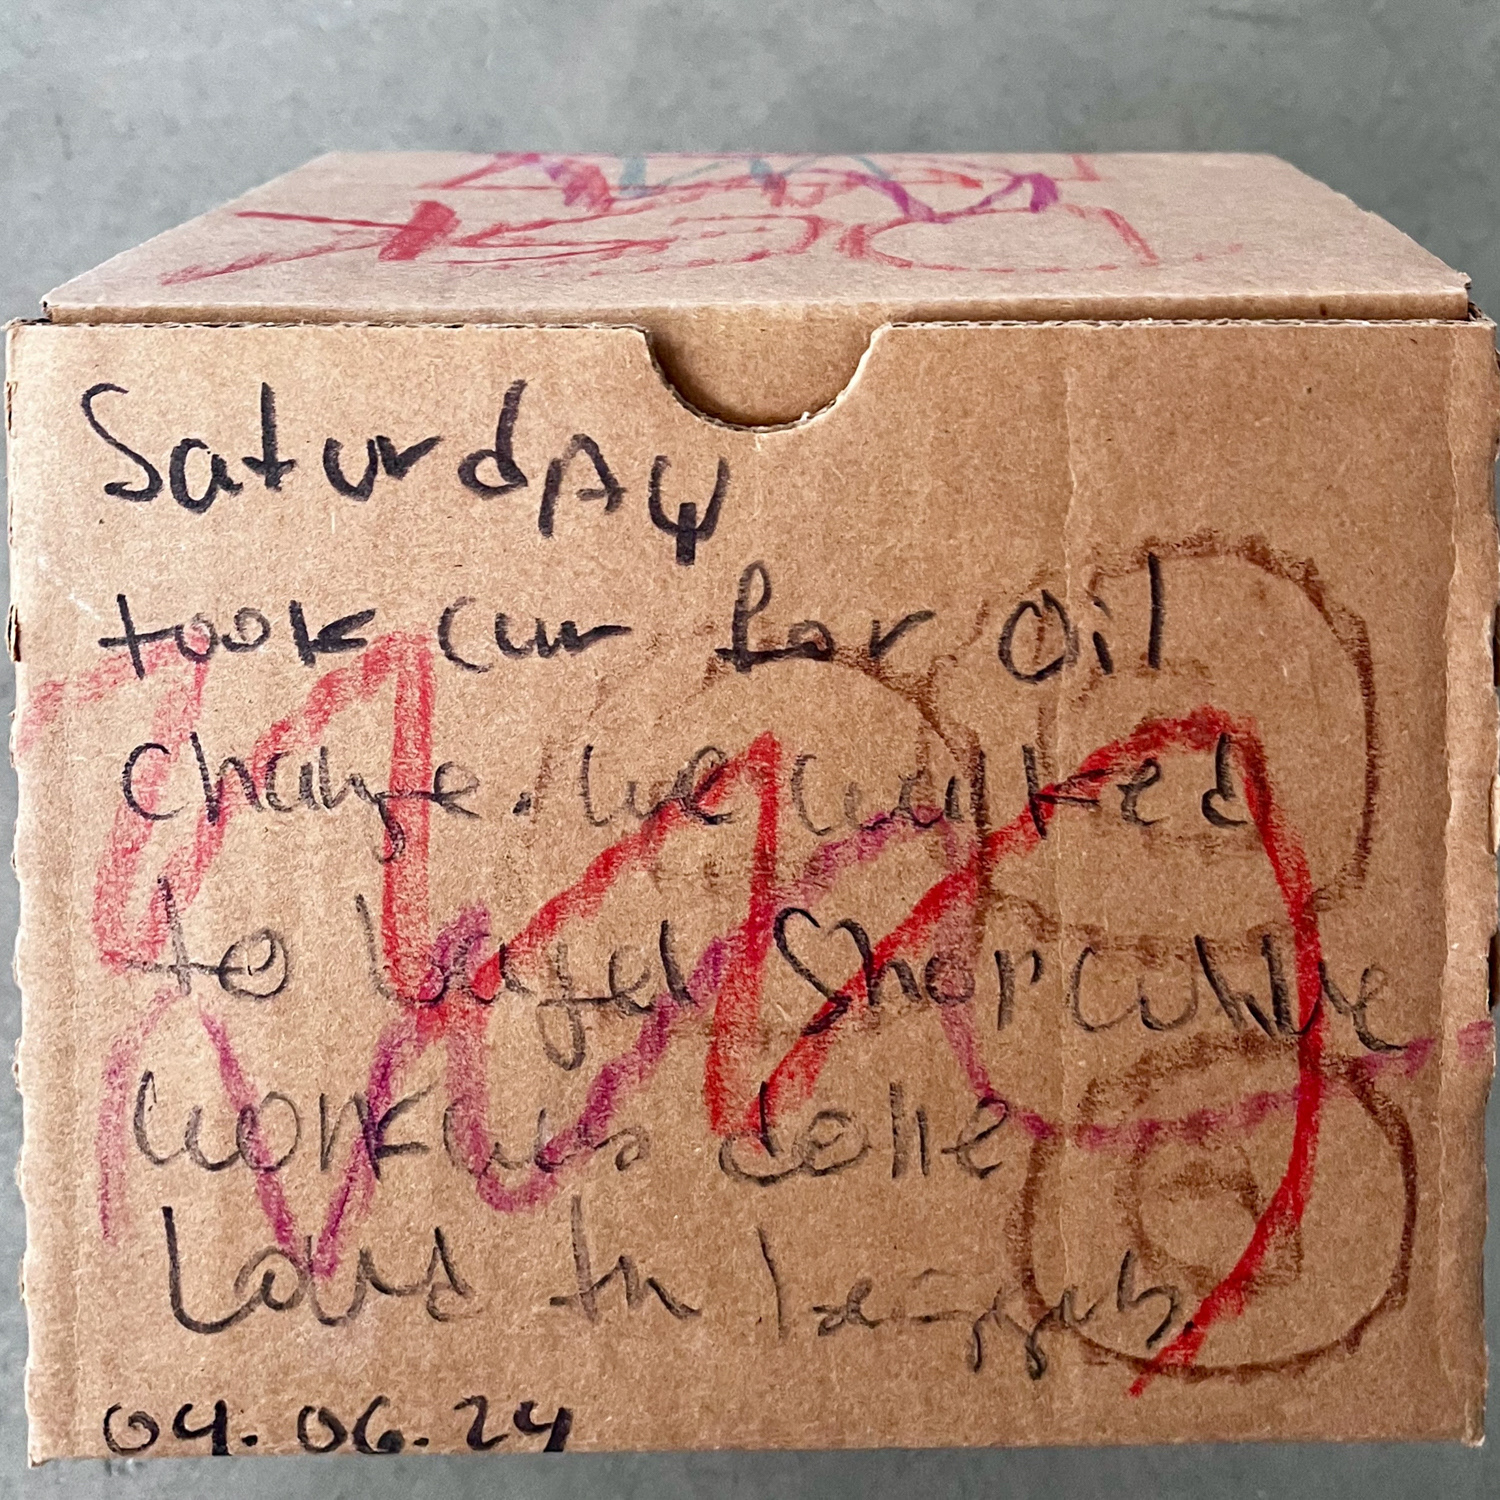 Saturday
took car for oil
change. we walked
to bagel shop while
work was done
Loved the
04.06.24